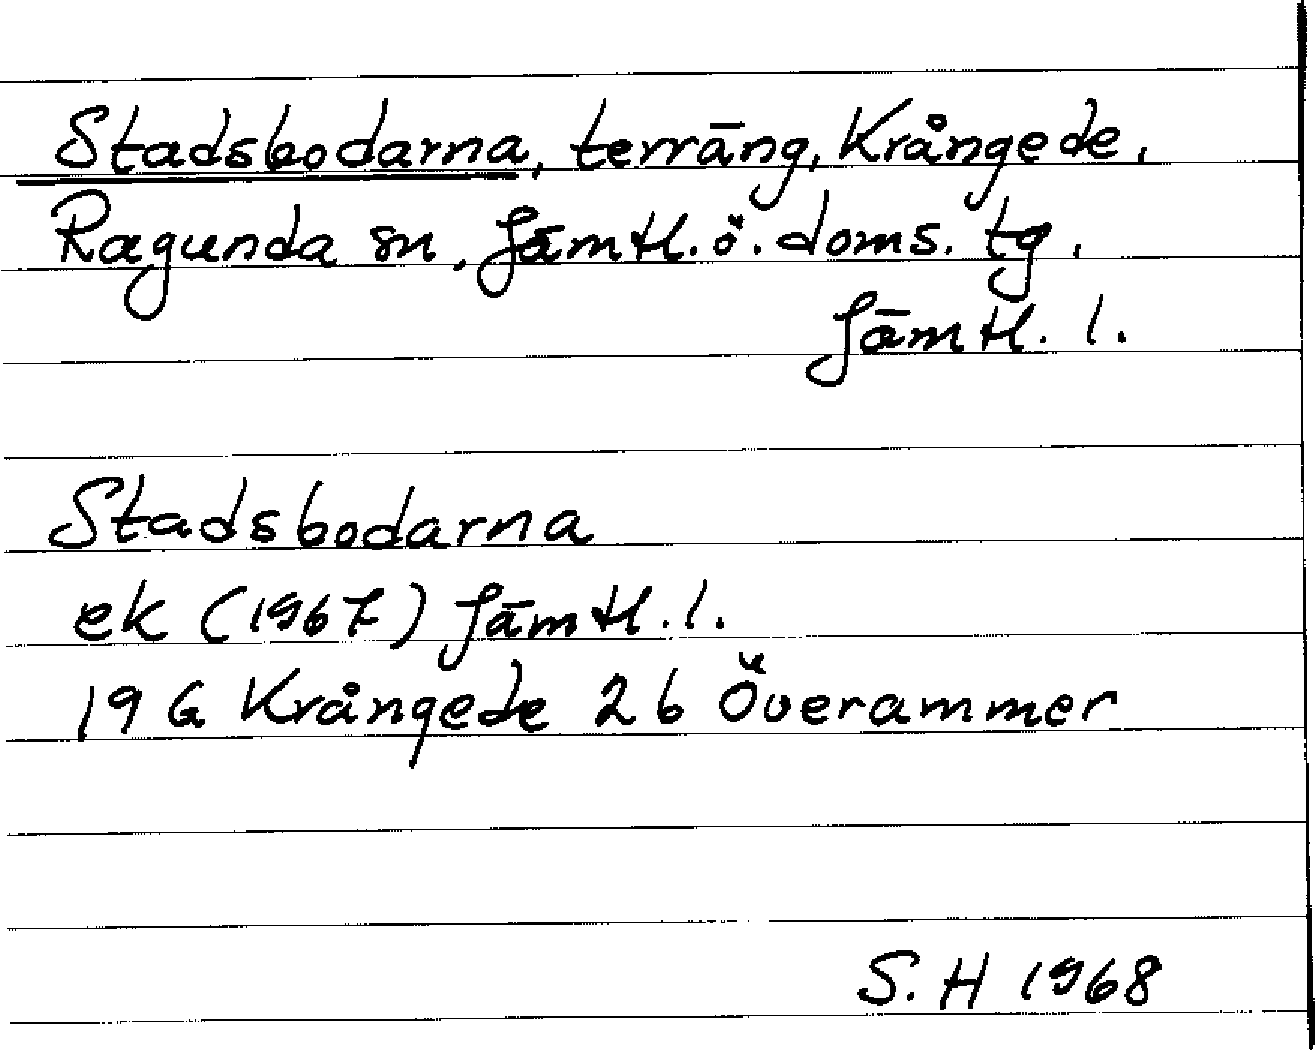 Stadsbodarna, terräng, Krångede,
Ragunda sn. Jämtl. ö. doms. tg.
Jämtl. l.
Stadsbodarna
ek (1967) Jämtl. l.
19 G Krångede 2b Överammer
S. H 1968